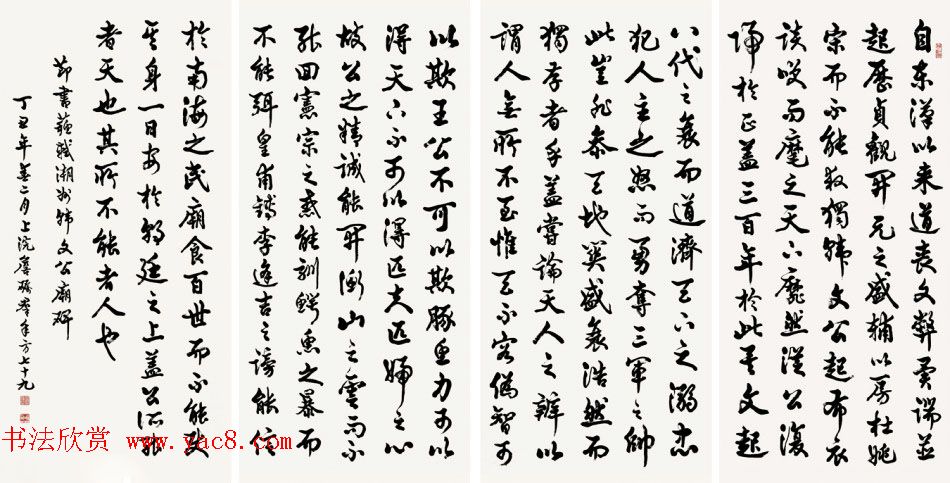 自东漢以来道丧文弊異端並
起歷貞觀開元之盛輔以房杜姚
宋而不能救獨韩文公起布衣
談笑而麾之天下靡然從公復
歸於正盖三百年於此矣文起
八代之衰而道濟天下之溺忠
犯人主之怒而勇奪三軍之帥
此豈非参天地关盛衰浩然而
獨存者乎盖嘗論天人之辨以
謂人無所不至惟天不容偽智可
以欺王公不可以欺豚魚力可以
得天下不可以得匹夫匹婦之心
故公之精誠能開衡山之雲而不
能回憲宗之惑能馴鳄魚之暴而
不能弭皇甫鎛李逢吉之謗能信
於南海之民廟食百世而不能使
其身一日安於朝廷之上盖公所能
者天也其所不能者人也
節書蘇軾潮州韓文公廟碑
丁丑年 二月上浣 年方七十九
书法欣赏 www.yac8.com